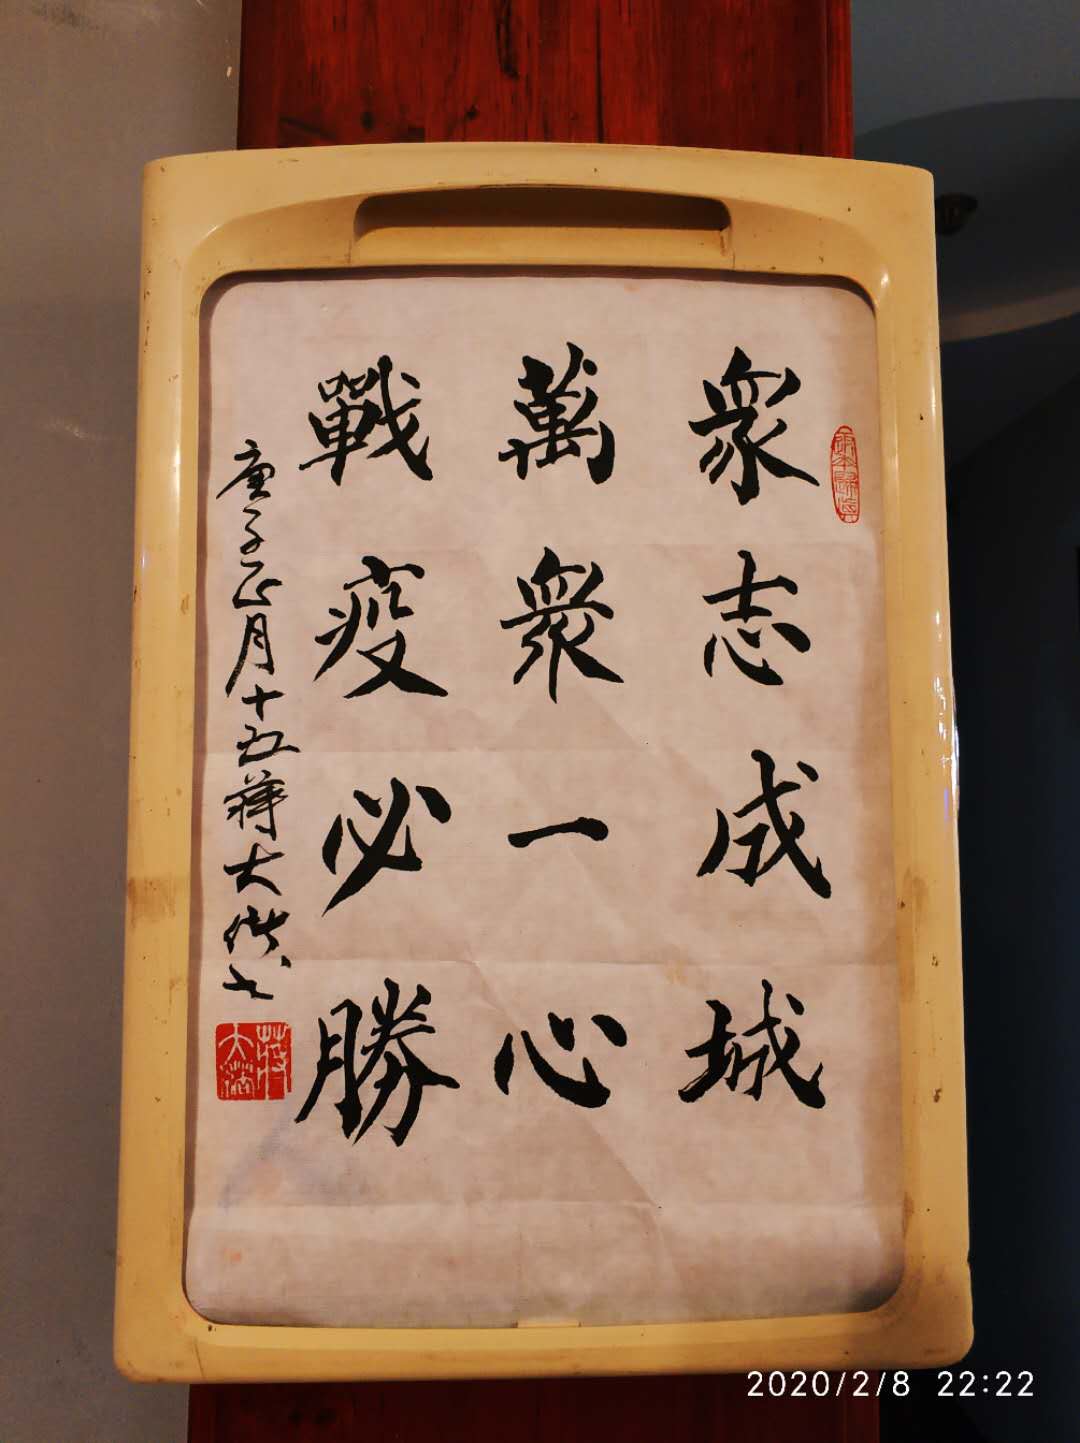 眾志成城
萬眾一心
戰疫必勝
庚子正月十五蔣大
2020/2/8 22:22